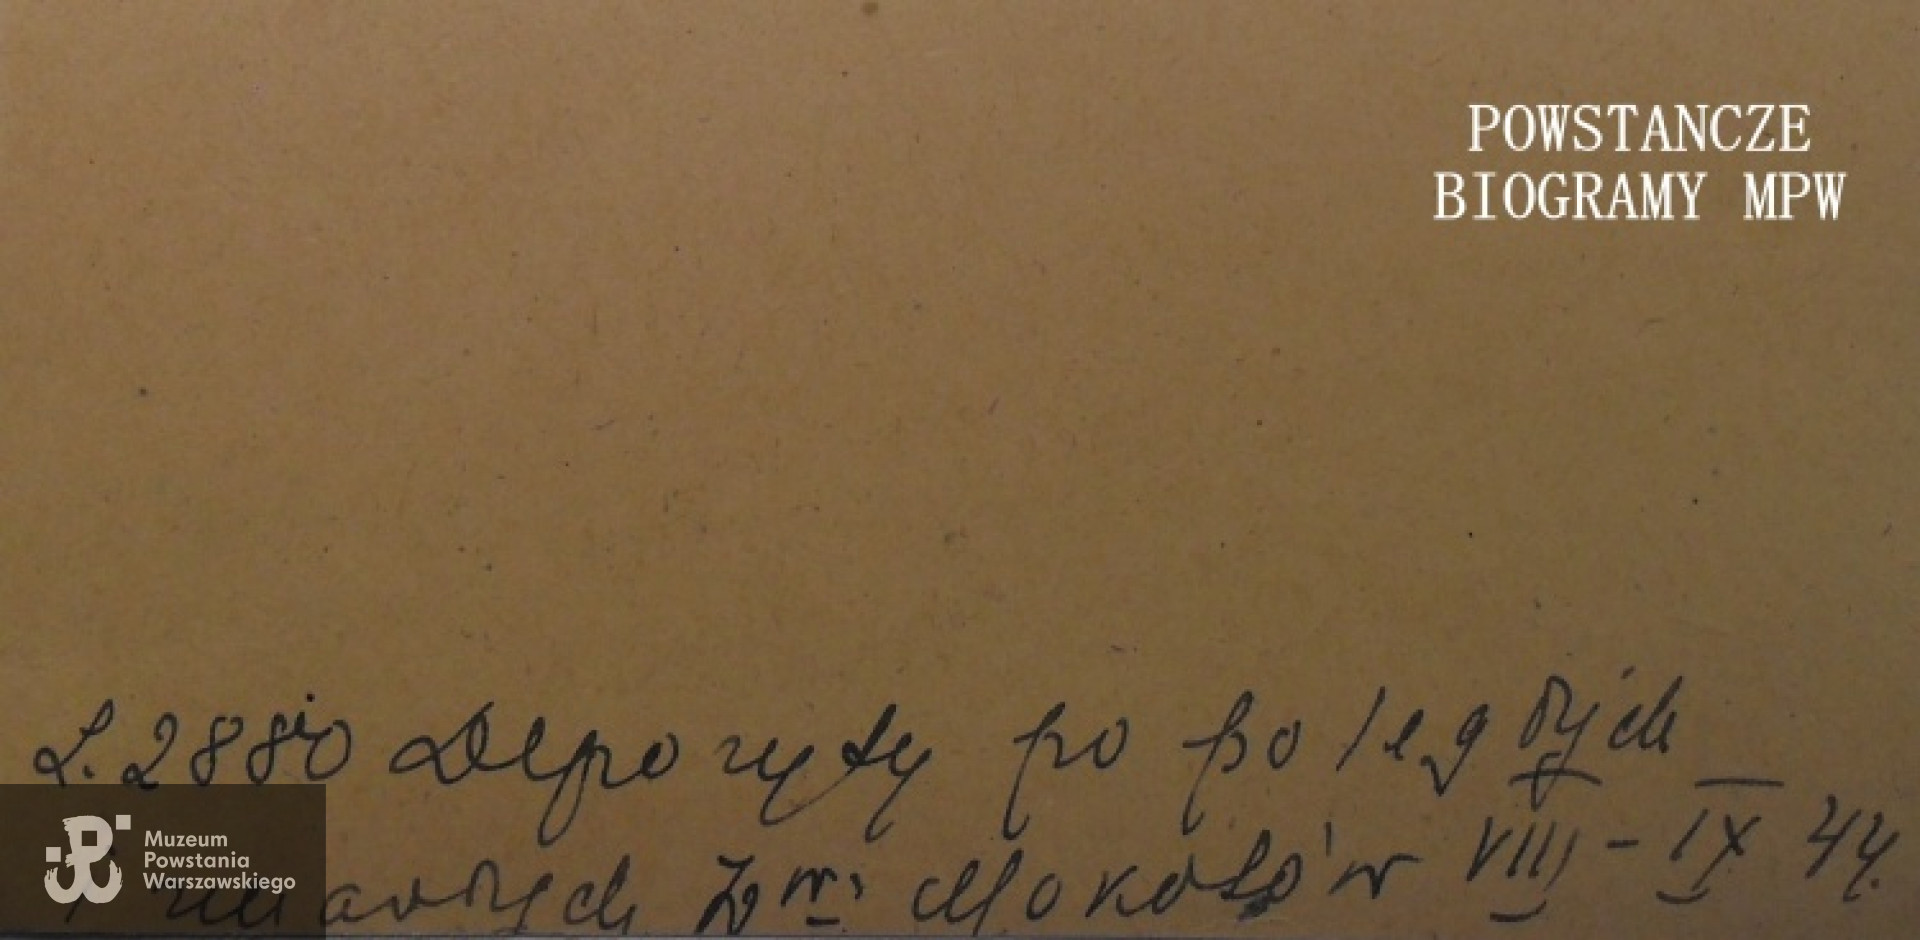 POWSTANCZE
BIOGRAMY MPW
L. 2880 Depozyty po poległych
i zmarłych Żw. Mokotów VIII - IX 44.
Muzeum
Powstania
Warszawskiego